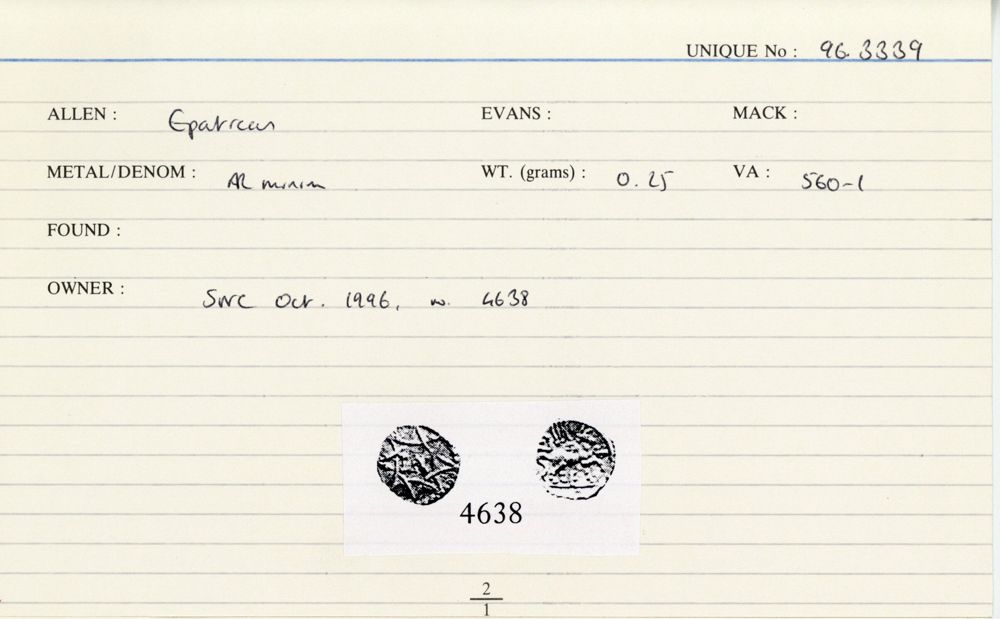 UNIQUE No : 96.3339
ALLEN : Epaticcus EVANS : MACK :
METAL/DENOM : AR minim WT. (grams) : 0.25 VA : 560-1
FOUND :
OWNER : SNC Oct. 1996, no. 4638
4638
2
1